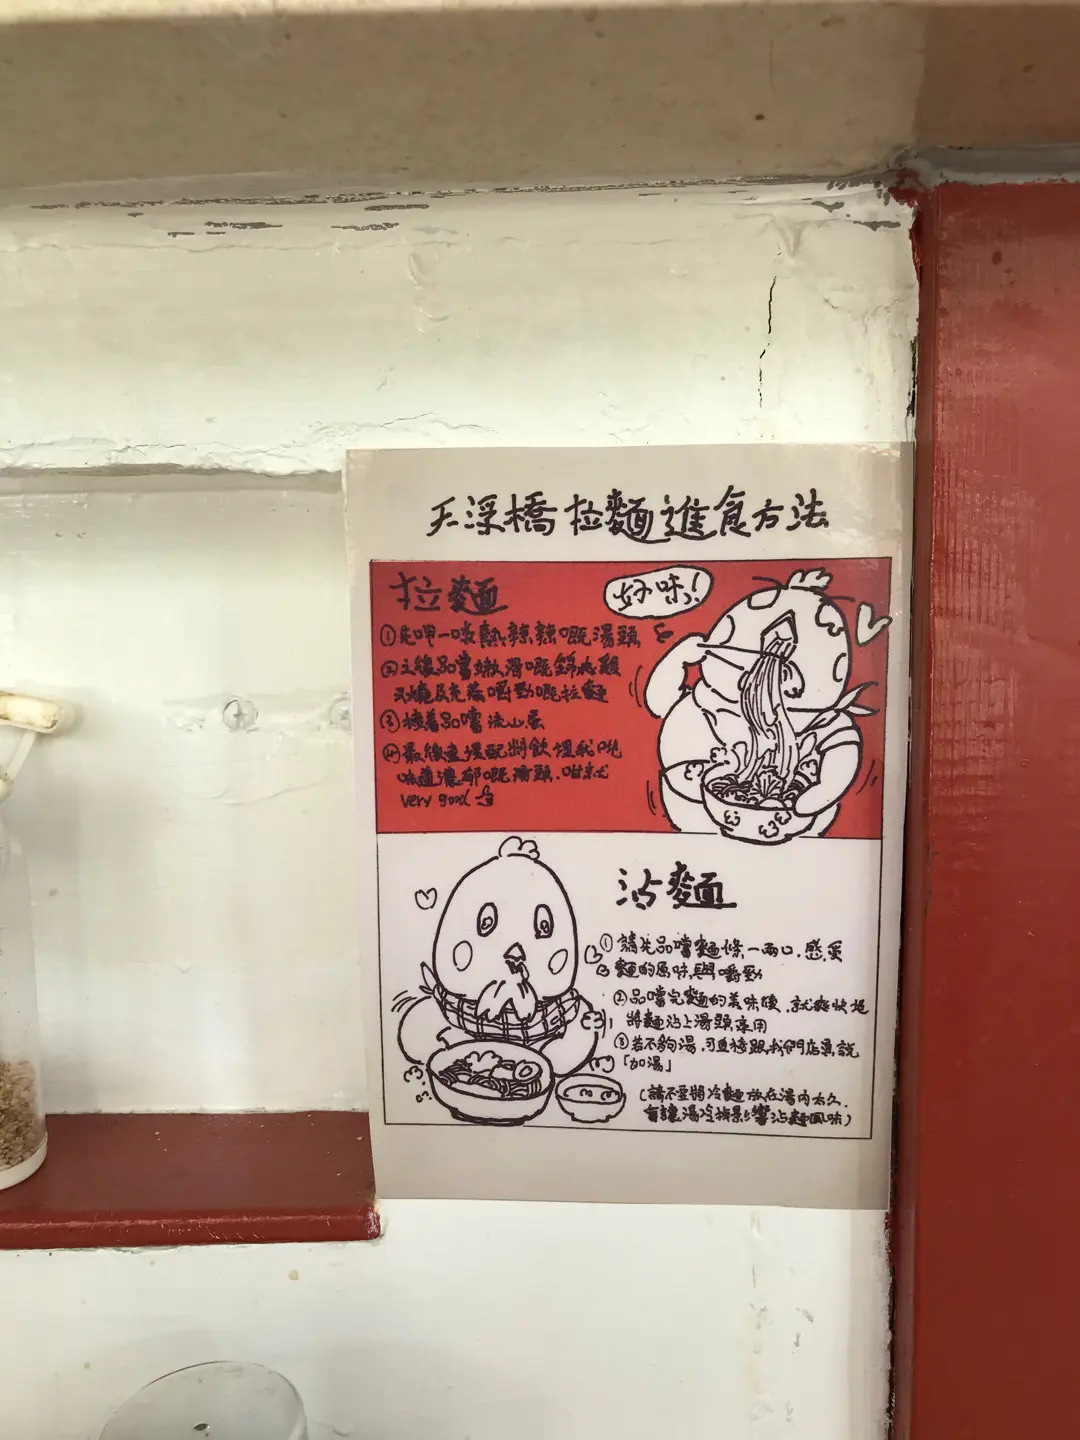 天浮橋拉麵進食方法
拉麵
好味!
①先呷一啖熱辣辣嘅湯頭
②之後品嚐嫩滑嘅雞
叉燒及充滿嚼勁嘅拉麵
③接着品嚐流心蛋
④最後連埋配料飲埋我哋
味道濃郁嘅湯頭.咁就
very good
沾麵
①請先品嚐麵條一兩口.感受
麵的原味與嚼勁
②品嚐完麵的美味後.就爽快地
將麵沾上湯頭享用
③若不夠湯.可直接跟我們店員說
「加湯」
(請不要將冷麵放在湯內太久.
會讓湯冷掉影響沾麵風味)